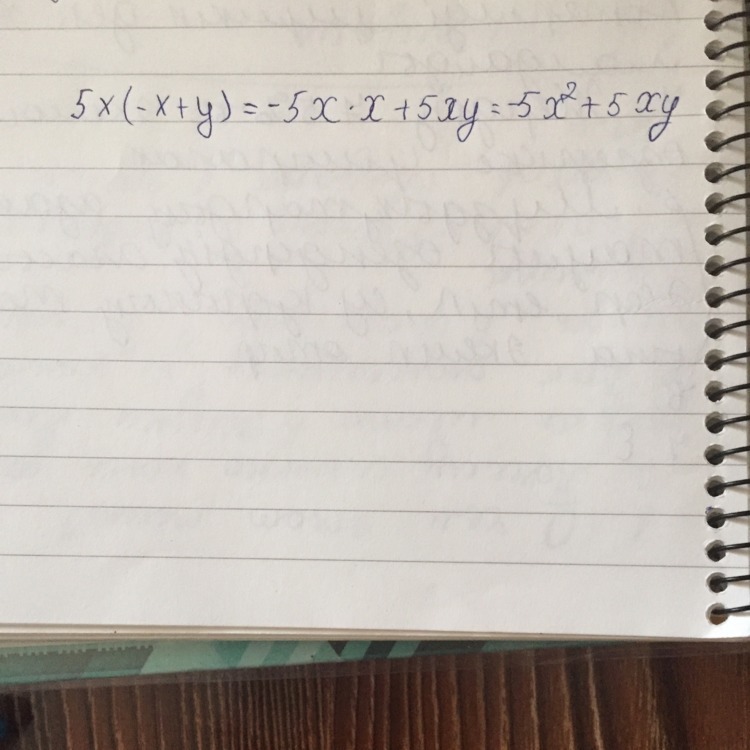 5x(-x+y)=-5x·x+5xy=-5x²+5xy